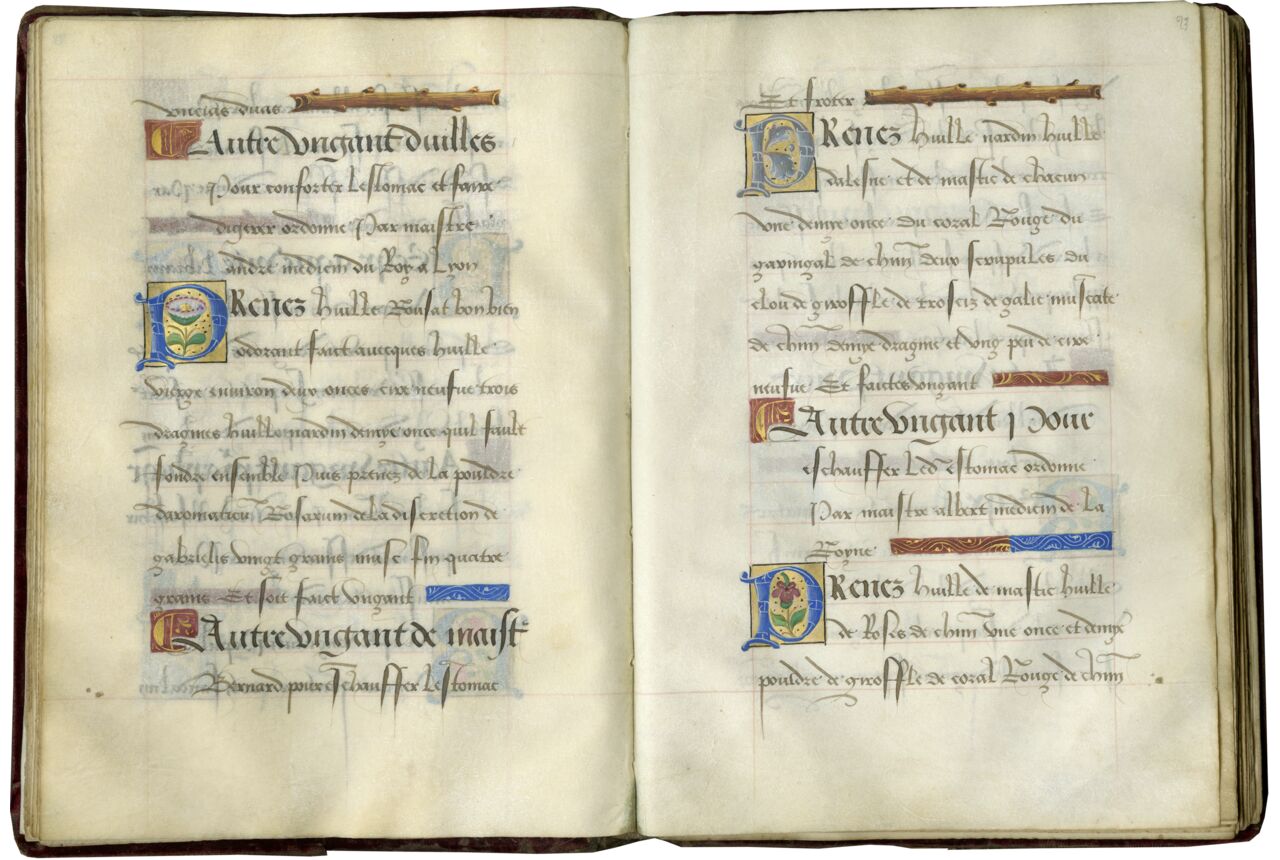 uncias duas
Autre ungant duilles
Pour conforter lestomac et faire
digerer ordonne Par maistre
andre medecin du Roy a Lyon
Prenez huille Rousat bon bien
odorant faict avecques huille
vierge environ deux onces cire neufve trois
dragmes huille nardin demye once quil fault
fondre ensemble Puis prenez de la pouldre
daromaticum Rosarum de la discretion de
gabrielis vingt grains musc fin quatre
grains Et soit faict ungant
Autre ungant de maist
Bernard pour eschauffer lestomac
93
Et froter
Prenez huille nardin huille
et de mastic de chacun
une demye once du coral Rouge du
gavingal de chũn deux scrupules du
clou de giroffle de trosciz de galie muscate
de chũn demye dragme et ung peu de cire
neufve Et faictes ungant
Autre ungant Pour
eschauffer led estomac ordonne
Par maistre albert medecin de la
Royne
Prenez huille de mastic huille
de Roses de chũn une once et demye
pouldre de giroffle de coral Rouge de chũn